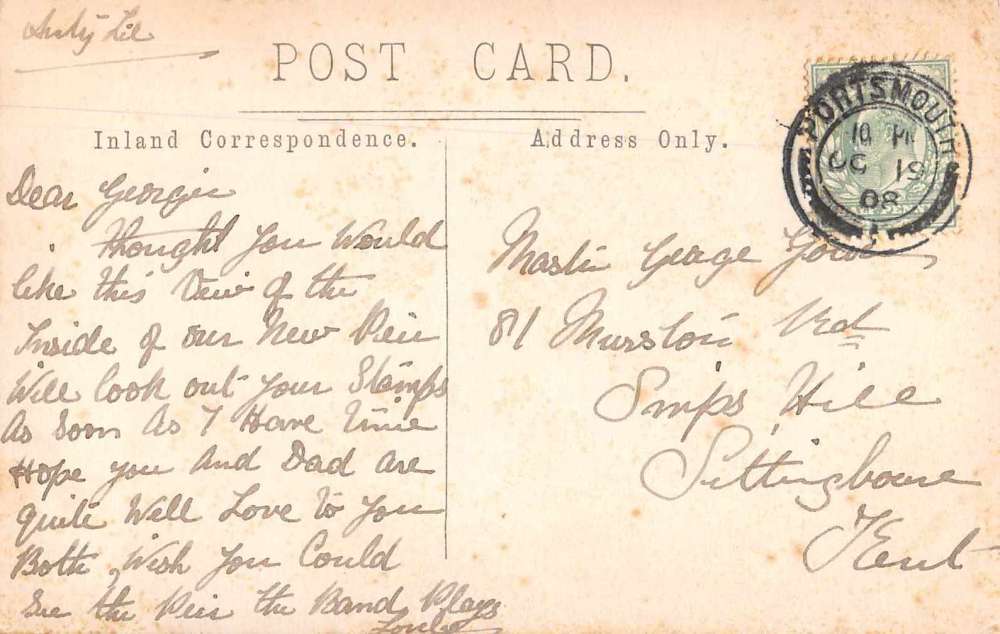 Anty Lil
POST CARD.
Inland Correspondence.
Address Only.
PORTSMOUTH
10 PM
OC 19
08
Dear Georgie
thought you Would
like this View of the
Inside of our New Pier
Will look out your Stamps
As Soon As I Have time
Hope you And Dad are
quite Well Love to you
Both Wish you Could
See the Pier the Band Plays
Lovely
Master George
81 Murston Rd
Snips Hill
Sittingbourne
Kent